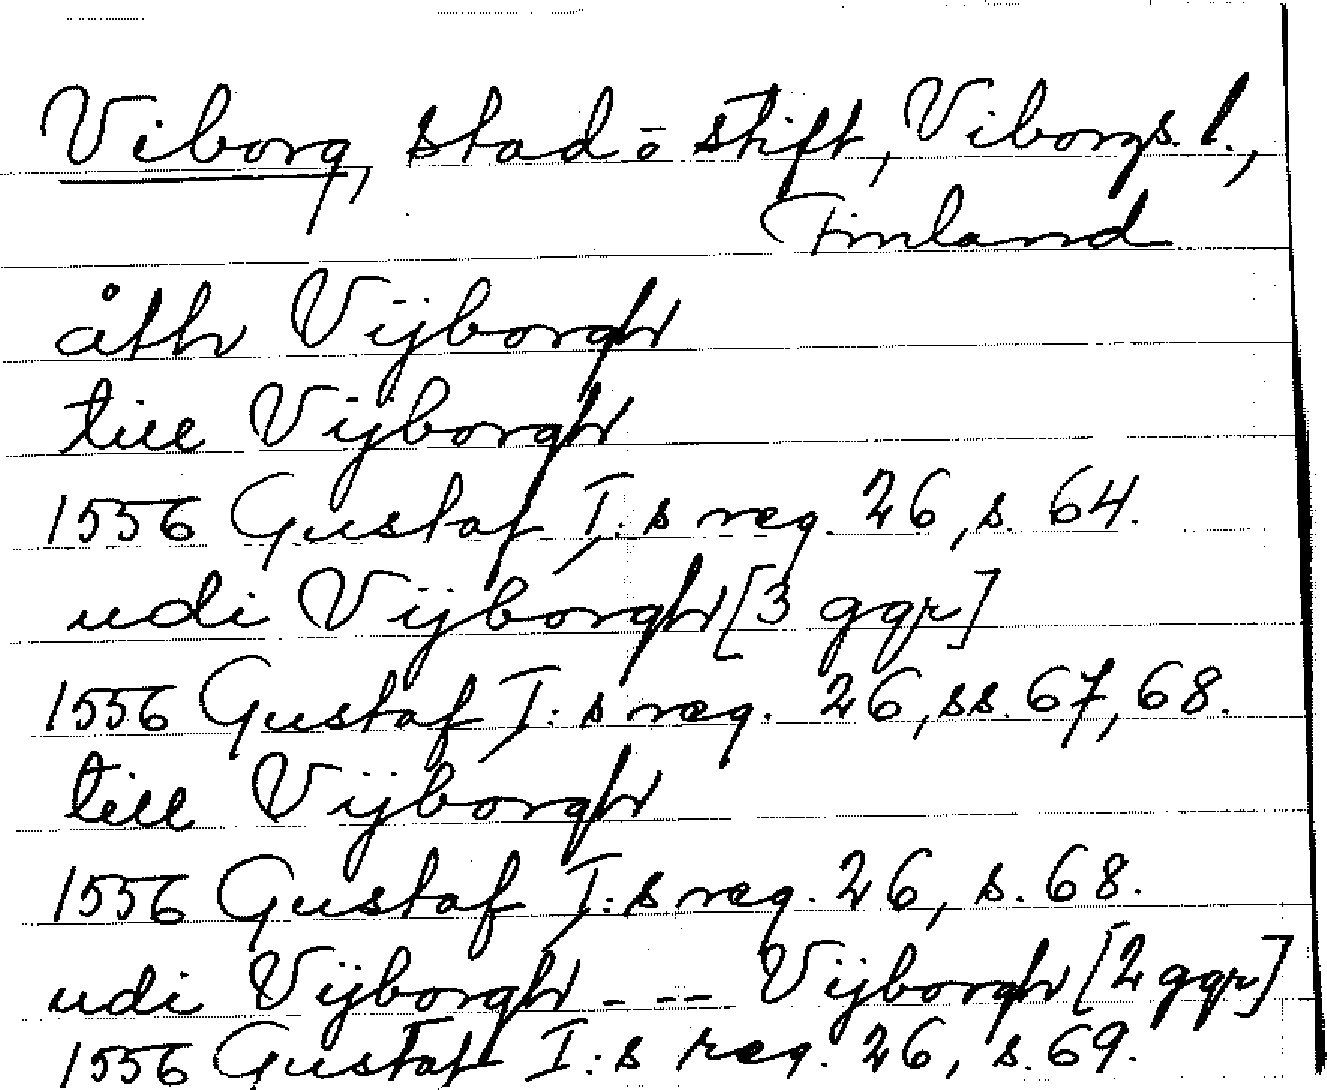 Viborg, stad o stift, Viborgs l.,
Finland
åth Vijborgh
till Vijborgh
1556 Gustaf I:s reg. 26, s. 64.
udi Vijborgh [3 ggr]
1556 Gustaf I:s reg. 26, ss. 67, 68.
till Vijborgh
1556 Gustaf I:s reg. 26, s. 68.
udi Vijborgh - - - Vijborgh [2 ggr]
1556 Gustaf I:s reg. 26, s. 69.